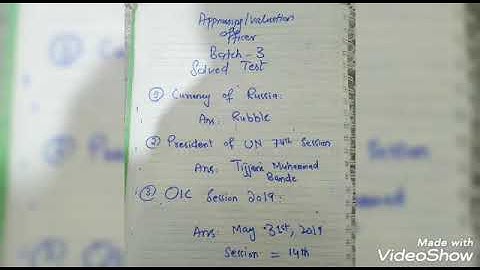 Appraising/valuation
officer
Batch - 3
Solved Test
① Currency of Russia:
Ans: Rubble
② President of UN 74th Session
Ans: Tijjani Muhammad
Bande
③ OIC Session 2019.
Ans: May 31st, 2019
Session = 14th
Made with
VideoShow